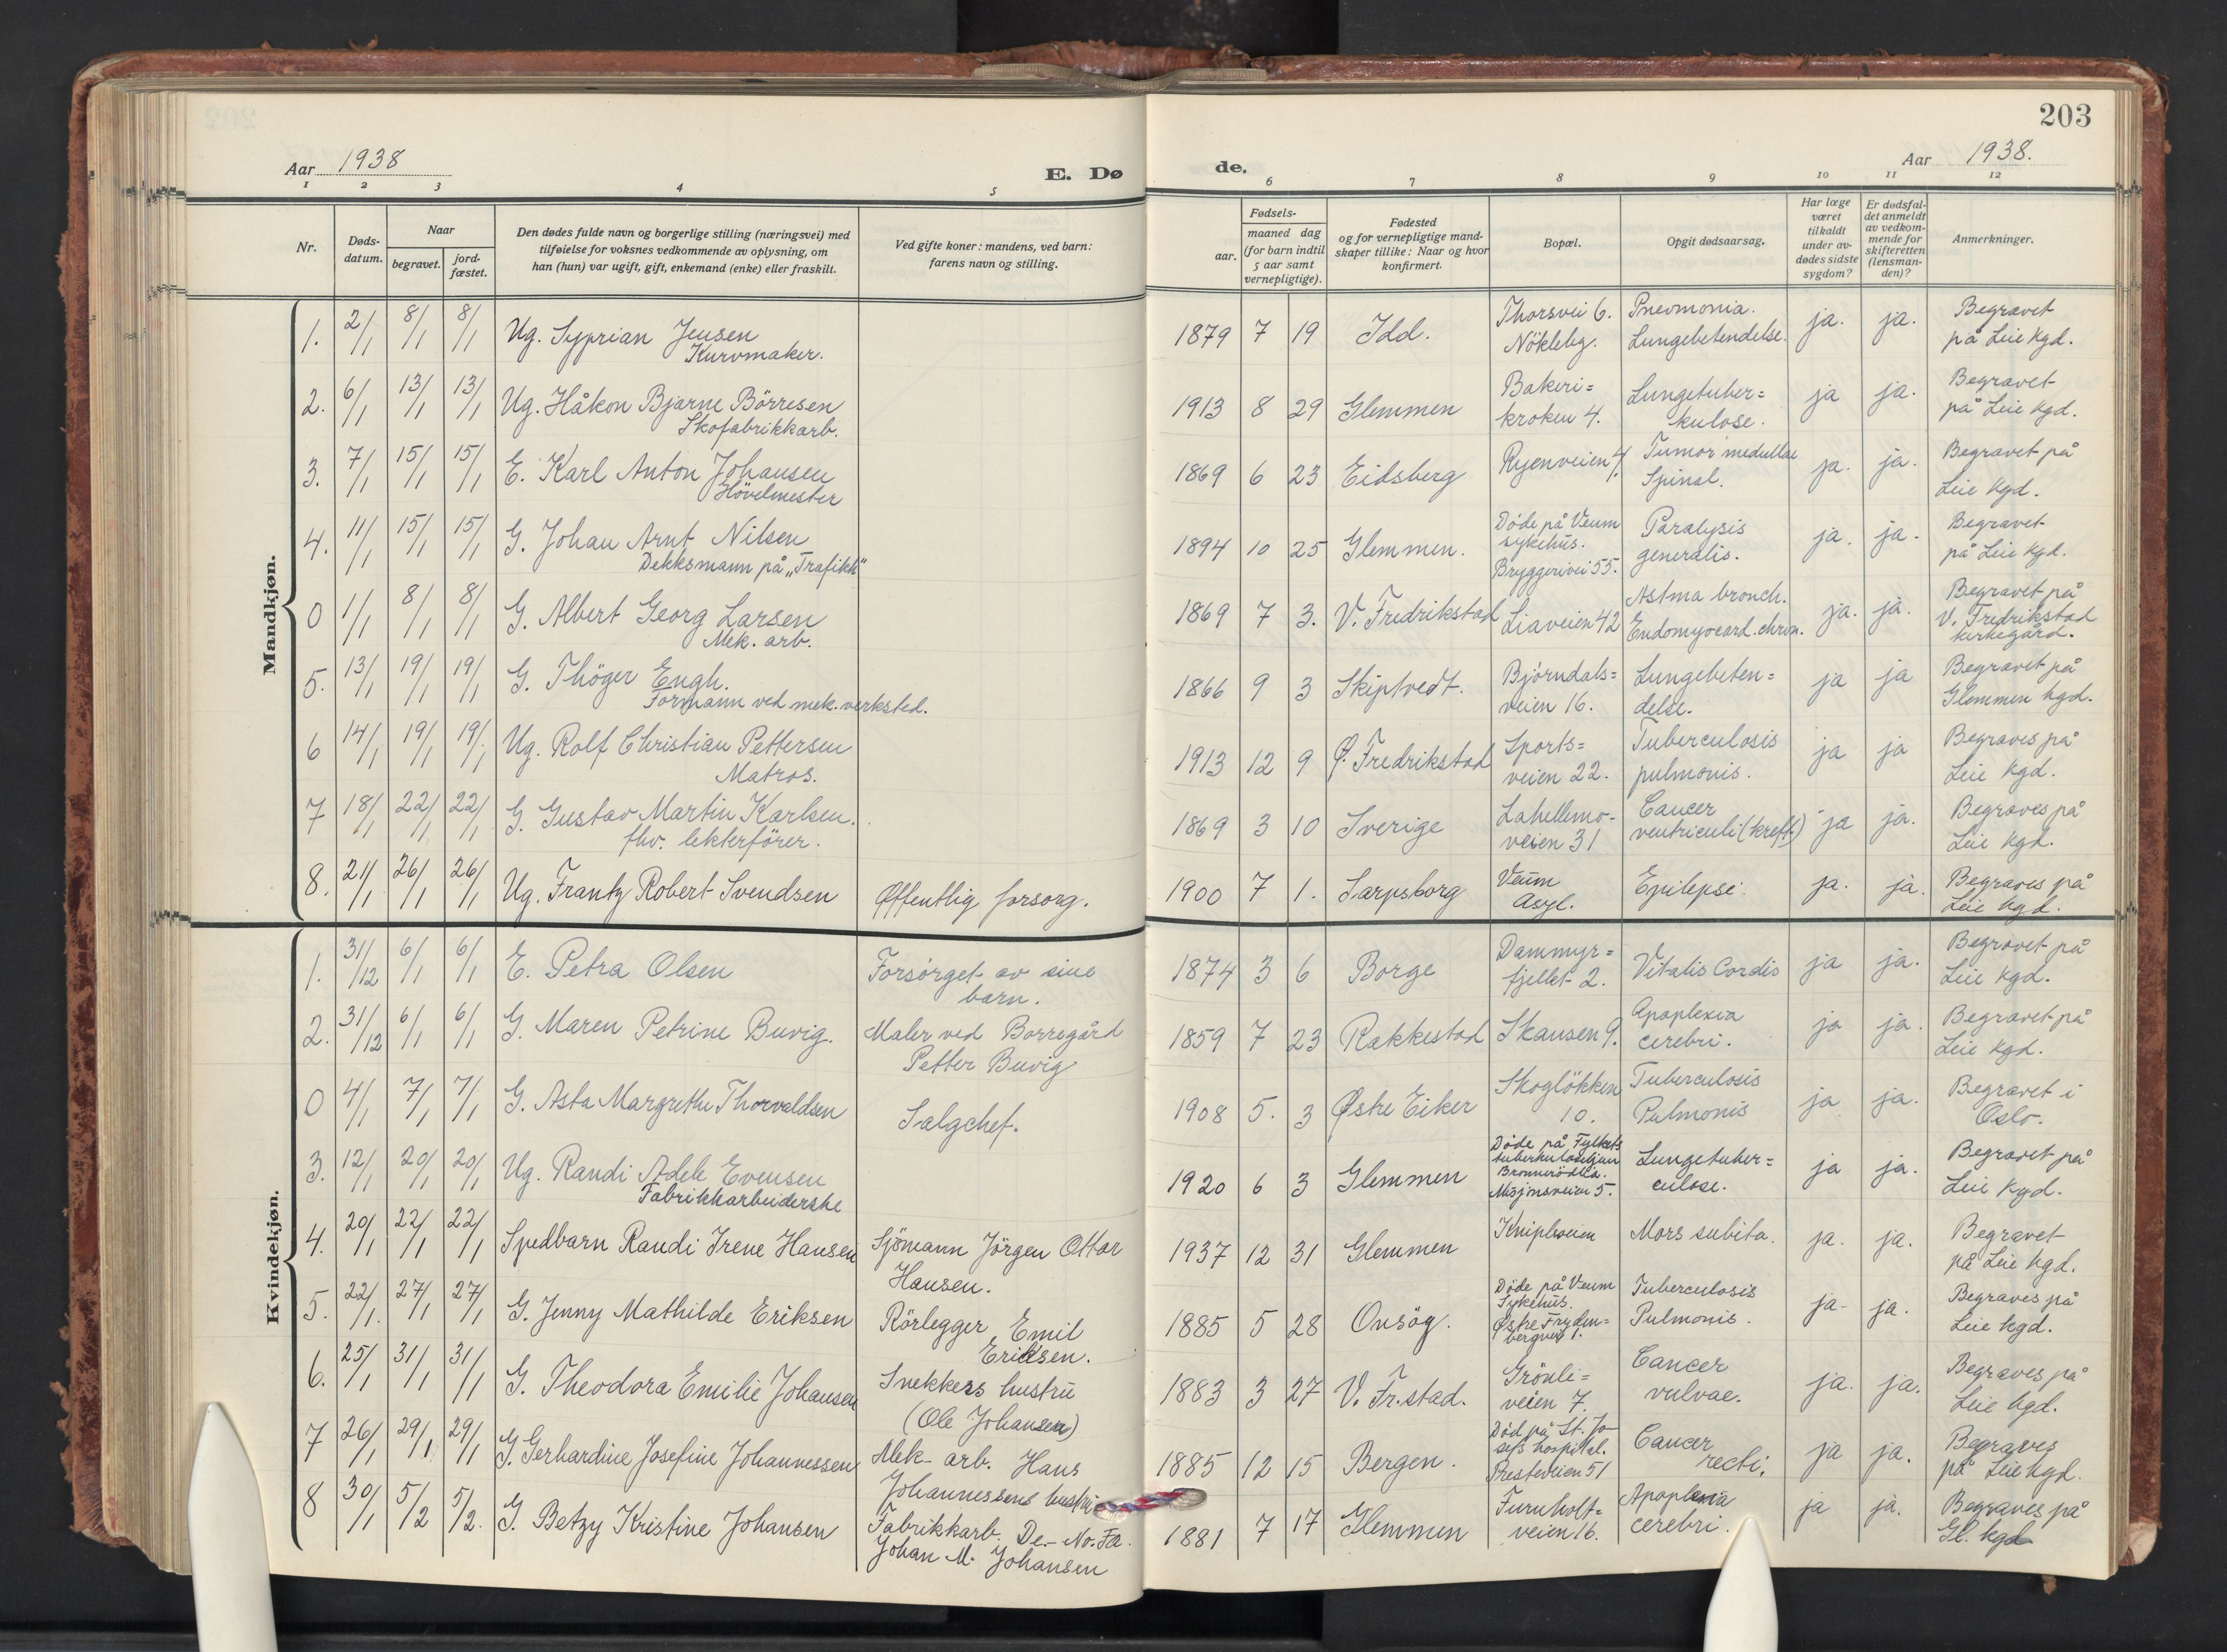 203
Aar 1938 E. Dø de. Aar 1938.
1 2 3 4 5 6 7 8 9 10 11 12
Nr. Døds-datum. Naar begravet. jord-fæstet. Den dødes fulde navn og borgerlige stilling (næringsvei) med tilføielse for voksnes vedkommende av oplysning, om han (hun) var ugift, gift, enkemand (enke) eller fraskilt. Ved gifte koner: mandens, ved barn: farens navn og stilling. Fødsels- aar. maaned dag (for barn indtil 5 aar samt vernepligtige). Fødested og for vernepligtige mand-skaper tillike: Naar og hvor konfirmert. Bopæl. Opgit dødsaarsag. Har læge været tilkaldt under av-dødes sidste sygdom? Er dødsfal-det anmeldt av vedkom-mende for skifteretten (lensman-den)? Anmerkninger.
Mandkjøn.
1. 2/1 8/1 8/1 Ug. Syprian Jensen 1879 7 19 Idd. Thorsvei 6. Pneomonia. ja. ja. Begravet
Kurvmaker. Nökleby. Lungebetendelse. på Leie Kgd.
2. 6/1 13/1 13/1 Ug. Håkon Bjarne Börresen 1913 8 29 Glemmen Bakeri= Lungetuber= ja ja. Begravet
Skofabrikkarb. kroken 4. kulose. på Leie kgd.
3. 7/1 15/1 15/1 E. Karl Anton Johansen 1869 6 23 Eidsberg Ryenveien 4. Tumor medullae ja. ja. Begravet på
Hövelmester Spinal. Leie kgd.
4. 11/1 15/1 15/1 G. Johan Arnt Nilsen 1894 10 25 Glemmen. Döde på Veum sykehus. Paralysis ja. ja. Begravet
Dekksmann på „Trafikk" Bryggerivei 55. generalis. på Leie kgd.
0 1/1 8/1 8/1 G. Albert Georg Larsen 1869 7 3. V. Fredrikstad Liaveien 42 Astma bronch. ja. ja. Begravet på
Mek. arb. Endomyocard. chron. V. Fredrikstad kirkegård.
5. 13/1 19/1 19/1 G. Thöger Engh. 1866 9 3 Skiptvedt. Bjørndals= Lungebeten= ja ja Begravet på
Formann ved mek. verksted. veien 16. delse. Glemmen kgd.
6 14/1 19/1 19/1 Ug. Rolf Christian Pettersen 1913 12 9 Ø. Fredrikstad Sports= Tuberculosis ja ja Begraves på
Matros. veien 22. pulmonis. Leie kgd.
7 18/1 22/1 22/1 G. Gustav Martin Karlsen. 1869 3 10 Sverige Lahellemo- Cancer ja ja. Begraves på
fhv. lekterförer. veien 31 ventriculi (kreft) Leie kgd.
8. 21/1 26/1 26/1 Ug. Frantz Robert Svendsen Offentlig forsorg. 1900 7 1. Sarpsborg Veum Epilepsi. ja. ja. Begraves på
Asyl. Leie kgd.
Kvindekjøn.
1. 31/12 6/1 6/1 E. Petra Olsen Forsörget av sine 1874 3 6 Borge Dammyr= Vitalis Cordis ja ja. Begravet på
barn. fjellet 2. Leie kgd.
2. 31/12 6/1 6/1 G. Maren Petrine Buvig. Maler ved Borregård 1859 7 23 Rakkestad Skansen 9. Apoplexia ja ja. Begravet på
Petter Buvig cerebri. Leie kgd.
0 4/1 7/1 7/1 G. Asta Margrethe Thorvaldsen Salgchef. 1908 5. 3 Østre Eiker Skoglökken Tuberculosis ja ja. Begravet i
10. Pulmonis Oslo.
3. 12/1 20/1 20/1 Ug. Randi Adele Evensen 1920 6 3 Glemmen Döde på Fylkets Lungetuber= ja ja. Begravet på
Fabrikkarbeiderske 5. culose. Leie kgd.
4. 20/1 22/1 22/1 Spedbarn Randi Irene Hansen Sjömann Jörgen Ottar 1937 12 31 Glemmen Knipleveien Mors subita. ja. ja. Begravet
Hansen. på Leie kgd.
5. 22/1. 27/1 27/1 G. Jenny Mathilde Eriksen Rörlegger Emil 1885 5 28 Onsöy. Döde på Veum Sykehus. Tuberculosis ja- ja. Begraves på
Eriksen. Østre Fryden=bergvei 1. Pulmonis. Leie kgd.
6. 25/1 31/1 31/1 G. Theodora Emilie Johansen Snekkers hustru 1883 3 27 V. Fr.stad. Grönli= Cancer ja. ja. Begraves på
(Ole Johansen) veien 7. vulvae. Leie kgd.
7 26/1 29/1 29/1 G. Gerhardine Josefine Johannessen Mek- arb. Hans 1885 12 15 Bergen. Död på St. Jo-sefs hospital. Cancer ja ja. Begraves
Johannessens hustru Presteveien 51 recti. på Leie kgd.
8 30/1 5/2 5/2. G. Betzy Kristine Johansen Fabrikkarb. De-No-Fa. 1881 7 17 Glemmen Furuholt= Apoplexia ja ja. Begraves på
Johan M. Johansen veien 16. cerebri. Gl. kgd